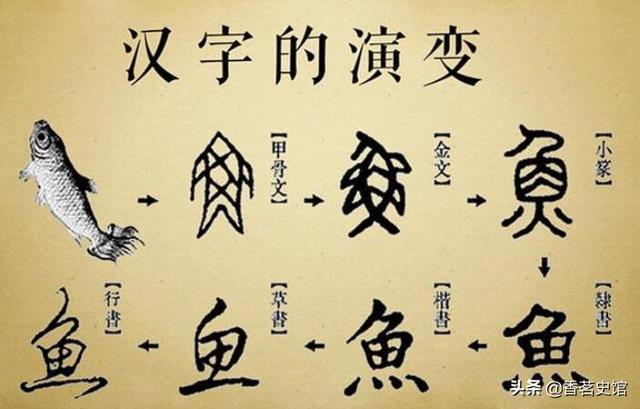 汉字的演变
魚【甲骨文】
魚【金文】
魚【小篆】
魚【隸書】
魚【楷書】
鱼【草書】
鱼【行書】
头条 @香茗史馆